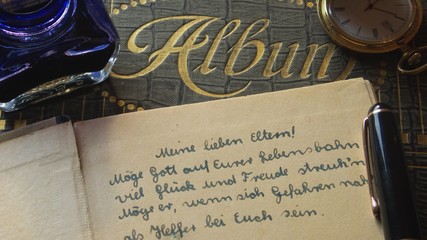 Album
Meine lieben Eltern!
Möge Gott auf Eurer Lebensbahn
viel Glück und Freude streuh'n
Möge er, wenn sich Gefahren nah'n
als Helfer bei Euch sein.